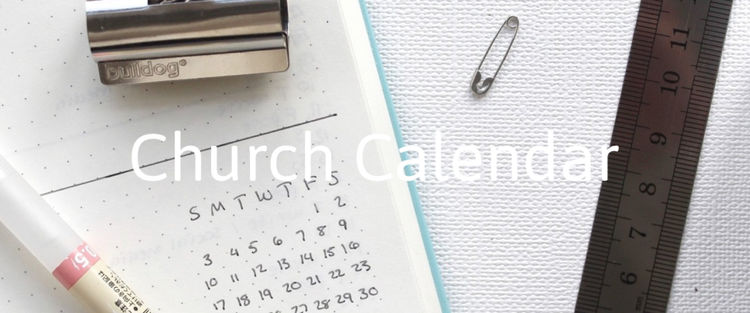 bulldog®
Church Calendar
S M T W T F S
1 2
3 4 5 6 7 8 9
10 11 12 13 14 15 16
17 18 19 20 21 22 23
27 28 29 30
0.5
11
10
9
8
7
6